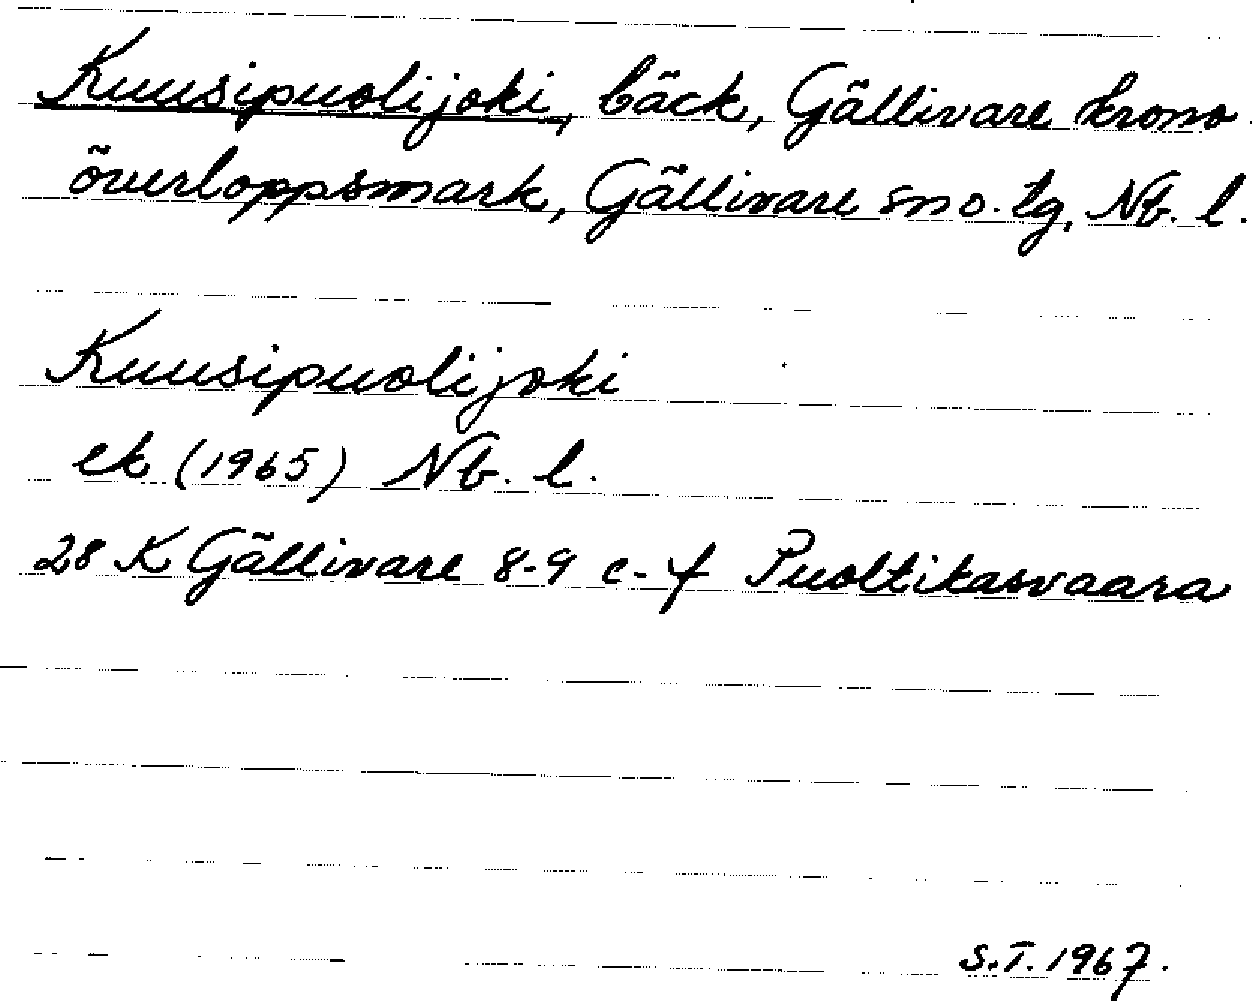 Kuusipuolijoki, bäck, Gällivare krono
överloppsmark, Gällivare sn o. tg, Nb. l.
Kuusipuolijoki
ek (1965) Nb. l.
28 K Gällivare 8-9 c-f Puoltikasvaara
S.T. 1967.